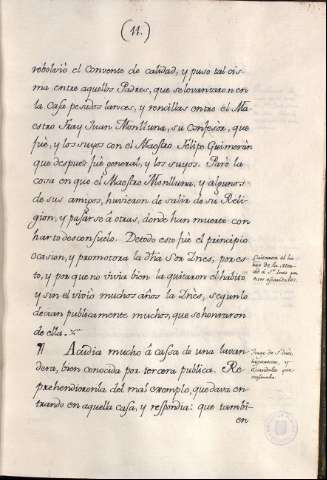 (11.)
rebolvió el Convente de calidad, y puso tal cis-
ma entre aquellos Padres, que se levantaron en
la casa pesados lances, y rencillas entre el Ma-
estro Fray Juan Montlluna, su Confesor, que
fue, y los suyos con el Maestro Felipe Guimerán
que despues fué general, y los suyos. Paró la
cosa en que el Maestro Montlluna, y algunos
de sus amigos, huvieron de salir de su Reli-
gion, y pasarse á otras, donde han muerto con
harto desconsuelo. De todo esto fué el principio
ocasion, y promotora la dha Sor Ynes, por es-
to, y por que no vivia bien la quitaron el habito
y sin el vivio muchos años la Ynes, segun lo
decian publicamente muchos, que se honraron
de ella.
¶ Acudia mucho á cassa de una lavan-
dera, bien conocida por tercera publica. Re-
prehendieronla del mal exemplo, que dava en-
trando en aquella casa, y respondia: que tambi-
en